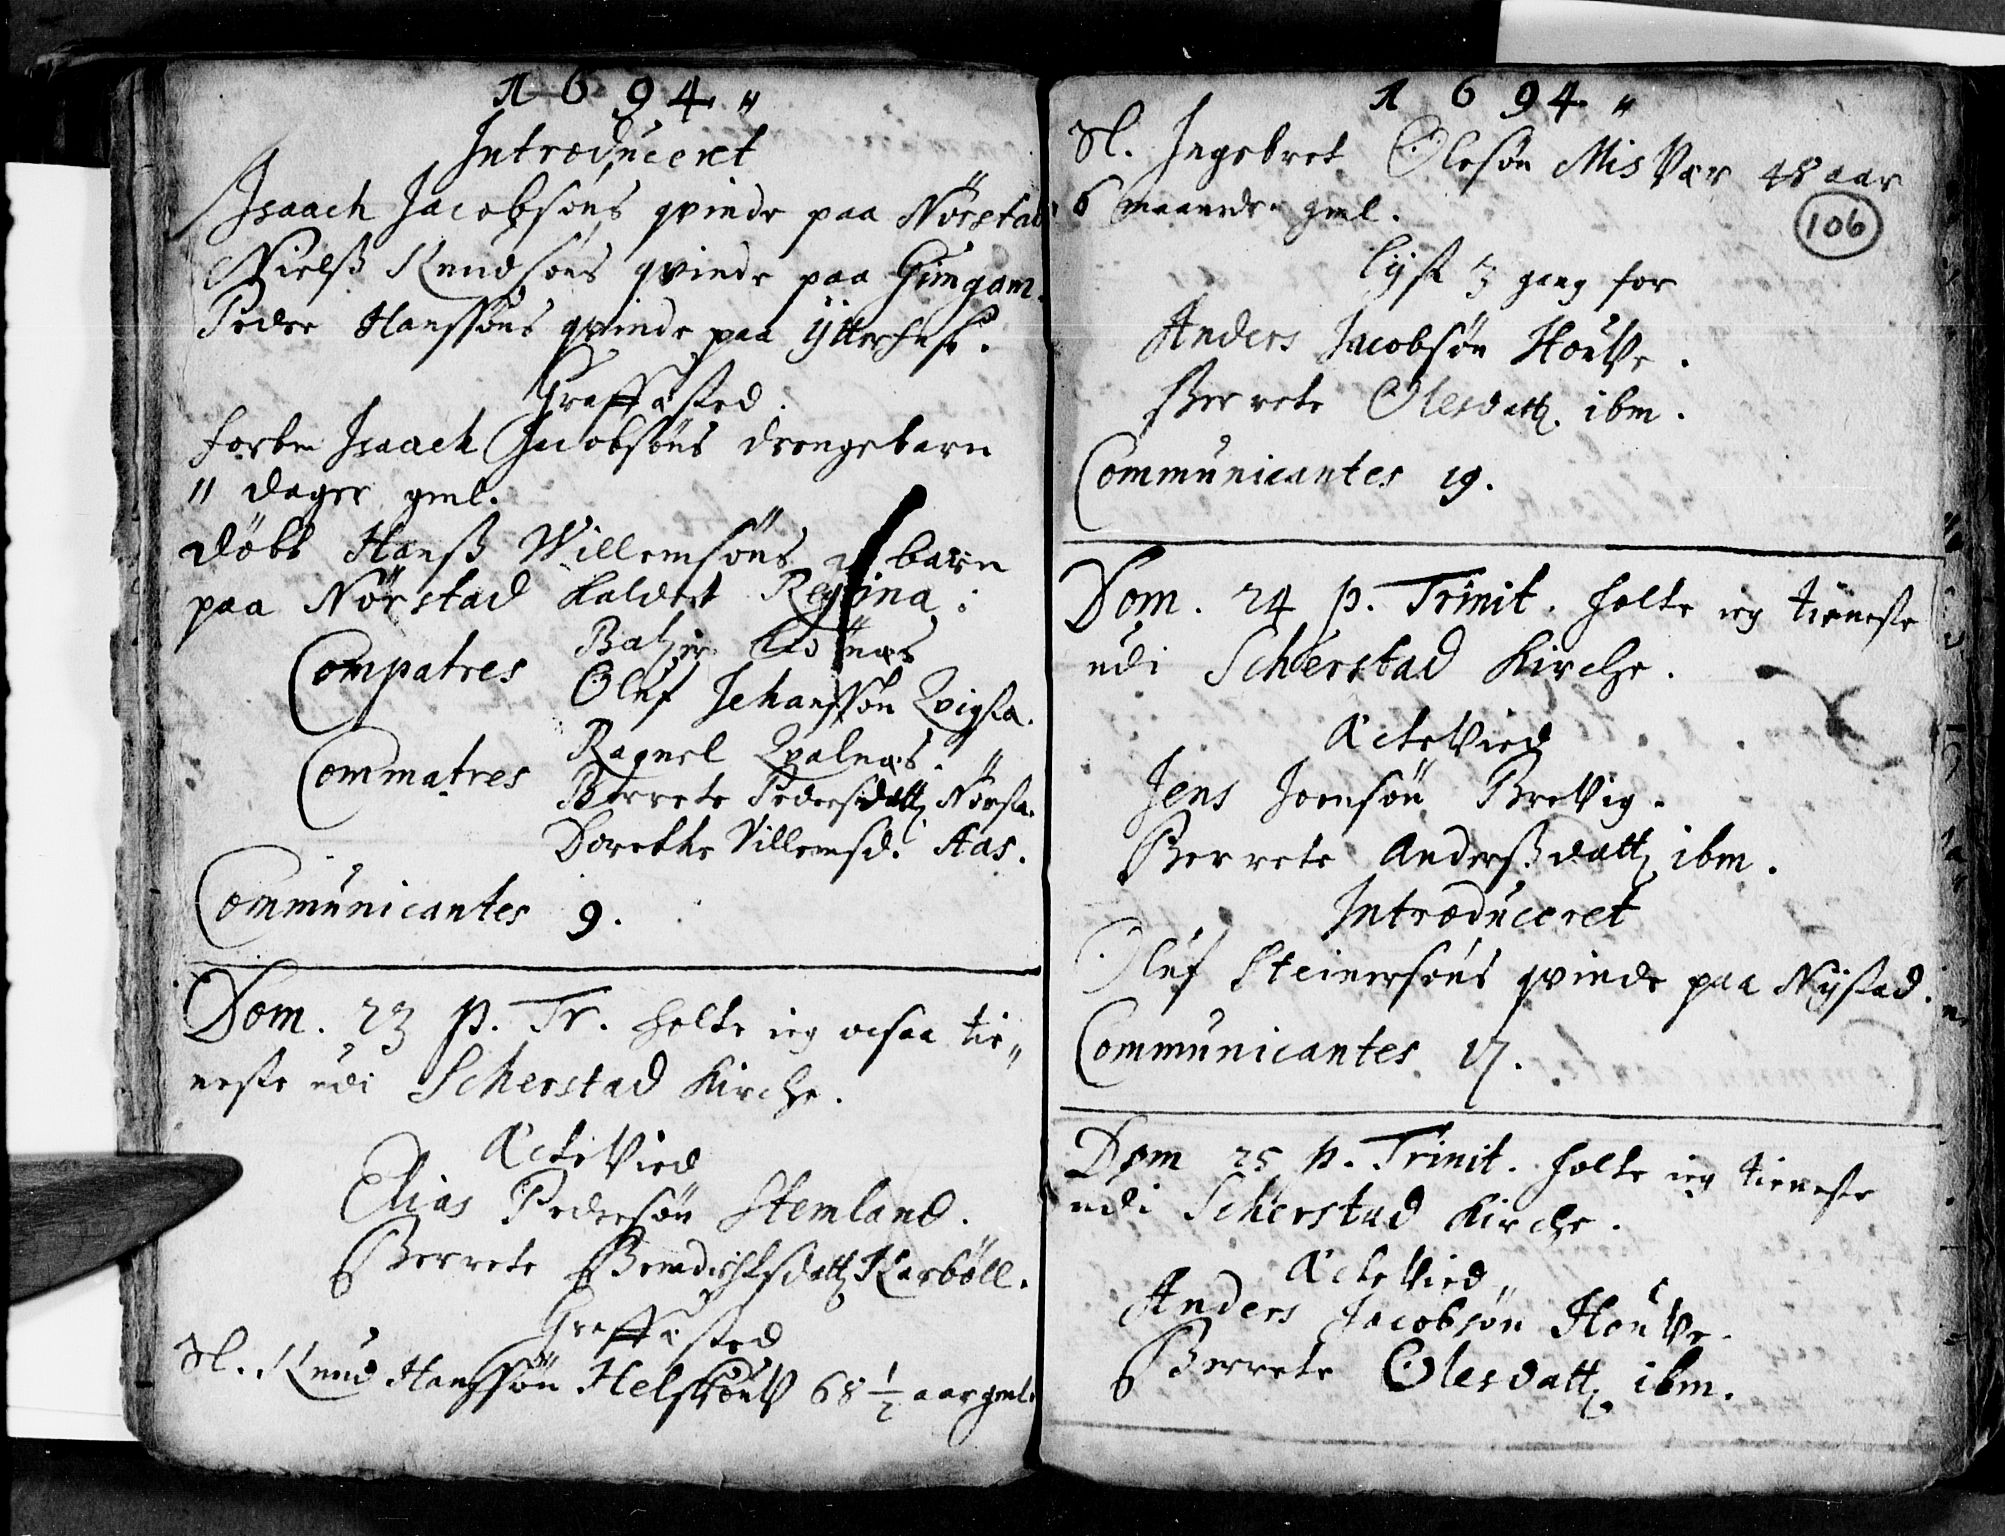 1694 "
Introduceret
Isaach Jacobsøns qvinde paa Nörstad
Nielß Knudsøns qvinde paa Gimgam.
Peder Hanssøns qvinde paa ÿtterhuse.
Graffæsted.
forbm Isaach Jacobsøns drengebarn
11 dager gml.
Döbt Hanß Willemsöns barn
paa Nörstad kaldet Regina:
Compatres
Balzer næs
Oluf Jehanssøn Qvigsta.
Commatres
Ragnel Qvalnæs.
Berrete Pedersdattr Nörsta.
Dorethe Villemsd. Aas.
Communicantes 9.
Dom. 23 p. Tr. holte ieg ocsaa tie„
neste udi Scherstad Kirche.
Æcte Vied
Elias Pedersøn Stemland.
Berrete Bendichtsdattr Karböll.
Graffæsted
Sl. Knud Hanssøn Helskouv 68 1/2 aar gml.
1694 "
Sl. Ingebret Olesøn MisVær 48 aar
6 maaneder gml.
106
lÿst 3 gang for
Anders Jacobsøn HouVe.
Berrete Olesdattr. ibm.
Communicantes 19.
Dom. 24 p. Trinit. holte ieg tieneste
udi Scherstad Kirche.
Æcte Vied
Jens Joensøn BreVig.
Berrete Anderßdattr ibm.
Introduceret
Oluf Steinersøns qvinde paa Nÿstad.
Communicantes 17.
Dom 25 p. Trinit. holte ieg tieneste
udi Scherstad Kirche.
Æcte Vied
Anders Jacobsøn HouVe.
Berrete Olesdattr ibm.